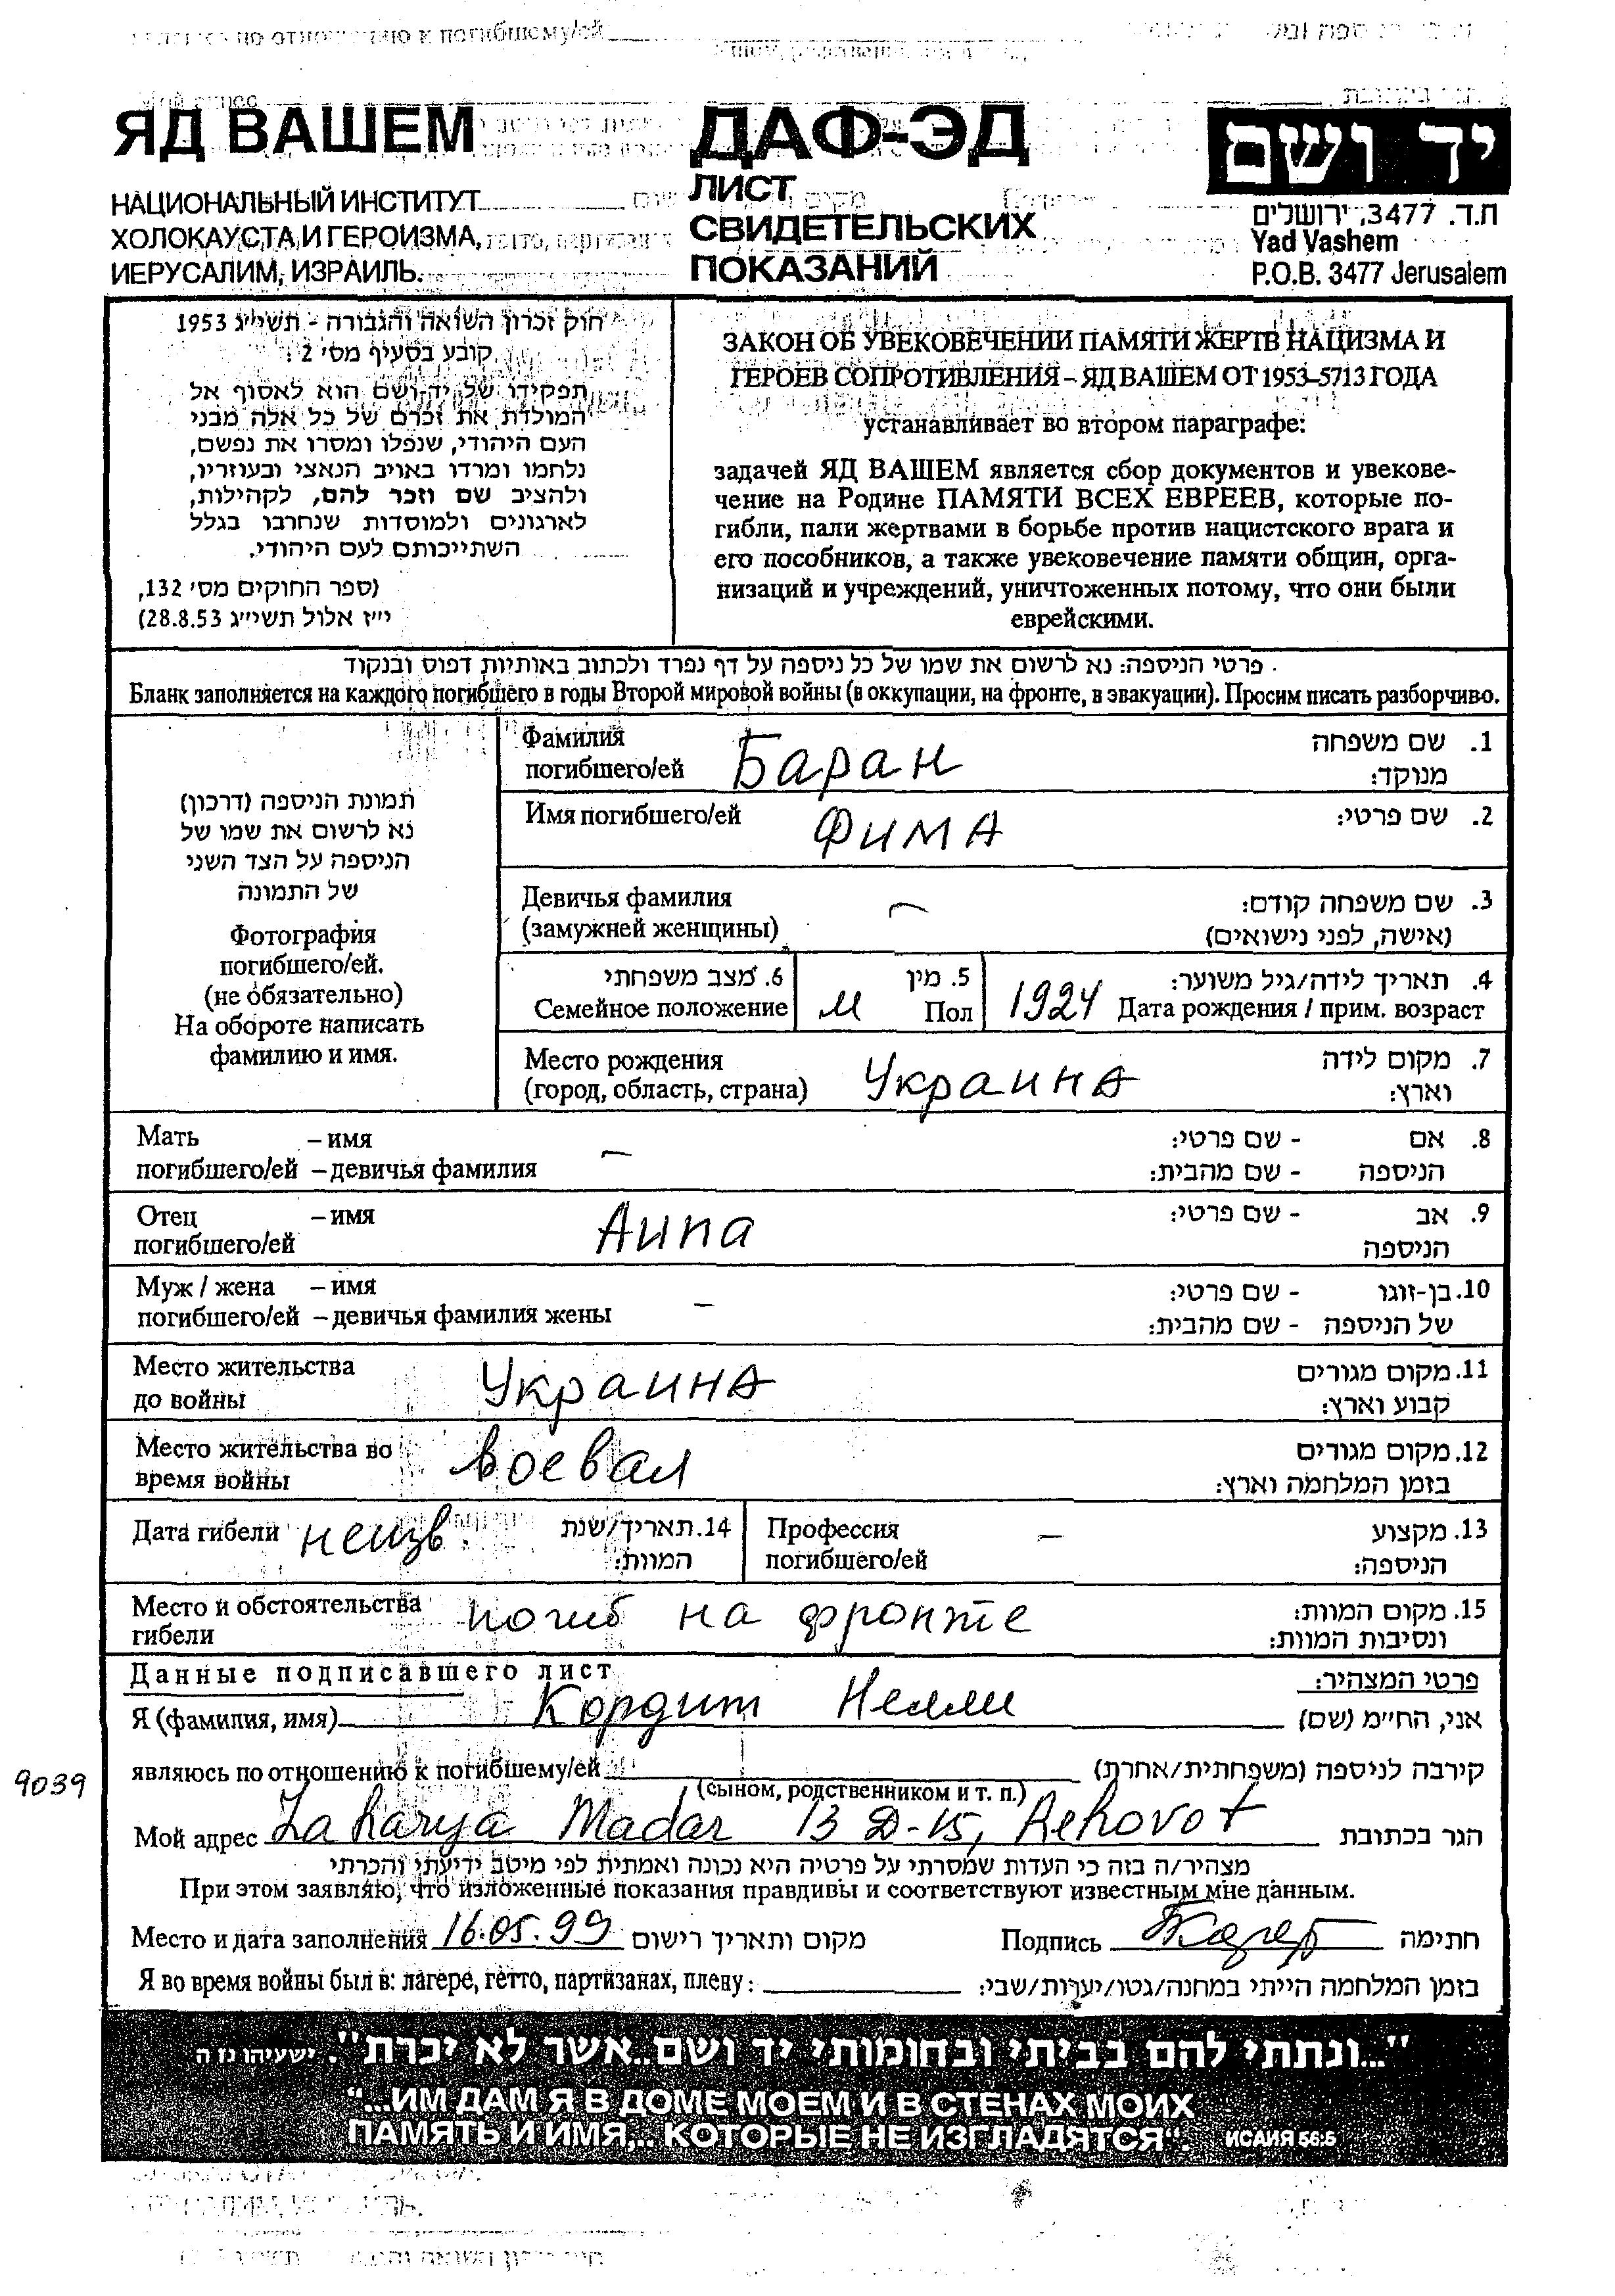 ЯД ВАШЕМ
НАЦИОНАЛЬНЫЙ ИНСТИТУТ
ХОЛОКАУСТА И ГЕРОИЗМА,
ИЕРУСАЛИМ, ИЗРАИЛЬ.
ДАФ-ЭД
ЛИСТ
СВИДЕТЕЛЬСКИХ
ПОКАЗАНИЙ
יד ושם
ת.ד. 3477, ירושלים
Yad Vashem
P.O.B. 3477 Jerusalem
חוק זכרון השואה והגבורה - תשי״ג 1953
קובע בסעיף מס׳ 2:
תפקידו של יד ושם הוא לאסוף אל
המולדת את זכרם של כל אלה מבני
העם היהודי, שנפלו ומסרו את נפשם,
נלחמו ומרדו באויב הנאצי ובעוזריו,
ולהציב שם וזכר להם, לקהילות,
לארגונים ולמוסדות שנחרבו בגלל
השתייכותם לעם היהודי.
(ספר החוקים מס׳ 132,
י״ז אלול תשי״ג 28.8.53)
ЗАКОН ОБ УВЕКОВЕЧЕНИИ ПАМЯТИ ЖЕРТВ НАЦИЗМА И
ГЕРОЕВ СОПРОТИВЛЕНИЯ – ЯД ВАШЕМ ОТ 1953–5713 ГОДА
устанавливает во втором параграфе:
задачей ЯД ВАШЕМ является сбор документов и увекове-
чение на Родине ПАМЯТИ ВСЕХ ЕВРЕЕВ, которые по-
гибли, пали жертвами в борьбе против нацистского врага и
его пособников, а также увековечение памяти общин, орга-
низаций и учреждений, уничтоженных потому, что они были
еврейскими.
פרטי הניספה: נא לרשום את שמו של כל ניספה על דף נפרד ולכתוב באותיות דפוס ובנקוד
Бланк заполняется на каждого погибшего в годы Второй мировой войны (в оккупации, на фронте, в эвакуации). Просим писать разборчиво.
תמונת הניספה (דרכון)
נא לרשום את שמו של
הניספה על הצד השני
של התמונה
Фотография
погибшего/ей.
(не обязательно)
На обороте написать
фамилию и имя.
Фамилия
погибшего/ей Баран
1. שם משפחה
מנוקד:
Имя погибшего/ей Фима 2. שם פרטי:
Девичья фамилия
(замужней женщины) –
3. שם משפחה קודם:
(אישה, לפני נישואים)
6. מצב משפחתי
Семейное положение
5. מין
м Пол
4. תאריך לידה/גיל משוער:
1924 Дата рождения / прим. возраст
Место рождения
(город, область, страна) Украина
7. מקום לידה
וארץ:
Мать – имя
погибшего/ей – девичья фамилия –
8. אם - שם פרטי:
הניספה - שם מהבית:
Отец – имя
погибшего/ей Аипа
9. אב - שם פרטי:
הניספה
Муж / жена – имя
погибшего/ей – девичья фамилия жены –
10. בן-זוגו - שם פרטי:
של הניספה - שם מהבית:
Место жительства
до войны Украина
11. מקום מגורים
קבוע וארץ:
Место жительства во
время войны воевал
12. מקום מגורים
בזמן המלחמה וארץ:
Дата гибели неизв.
14. תאריך/שנת
המוות:
Профессия
погибшего/ей –
13. מקצוע
הניספה:
Место и обстоятельства
гибели погиб на фронте
15. מקום המוות:
ונסיבות המוות:
Данные подписавшего лист פרטי המצהיר:
Я (фамилия, имя) Кордит Нелли אני, הח״מ (שם)
9039
являюсь по отношению к погибшему/ей קירבה לניספה (משפחתית/אחרת)
(сыном, родственником и т. п.)
Мой адрес Zakarya Madar 13 D-15, Rehovot הגר בכתובת
מצהיר/ה בזה כי העדות שמסרתי על פרטיה היא נכונה ואמתית לפי מיטב ידיעתי והכרתי
При этом заявляю, что изложенные показания правдивы и соответствуют известным мне данным.
Место и дата заполнения 16.05.99 מקום ותאריך רישום Подпись חתימה
Я во время войны был в: лагере, гетто, партизанах, плену: בזמן המלחמה הייתי במחנה/גטו/יערות/שבי:
"...ונתתי להם בביתי ובחומותי יד ושם..אשר לא יכרת". ישעיהו נו ה
"...ИМ ДАМ Я В ДОМЕ МОЕМ И В СТЕНАХ МОИХ
ПАМЯТЬ И ИМЯ,.. КОТОРЫЕ НЕ ИЗГЛАДЯТСЯ". ИСАИЯ 56:5